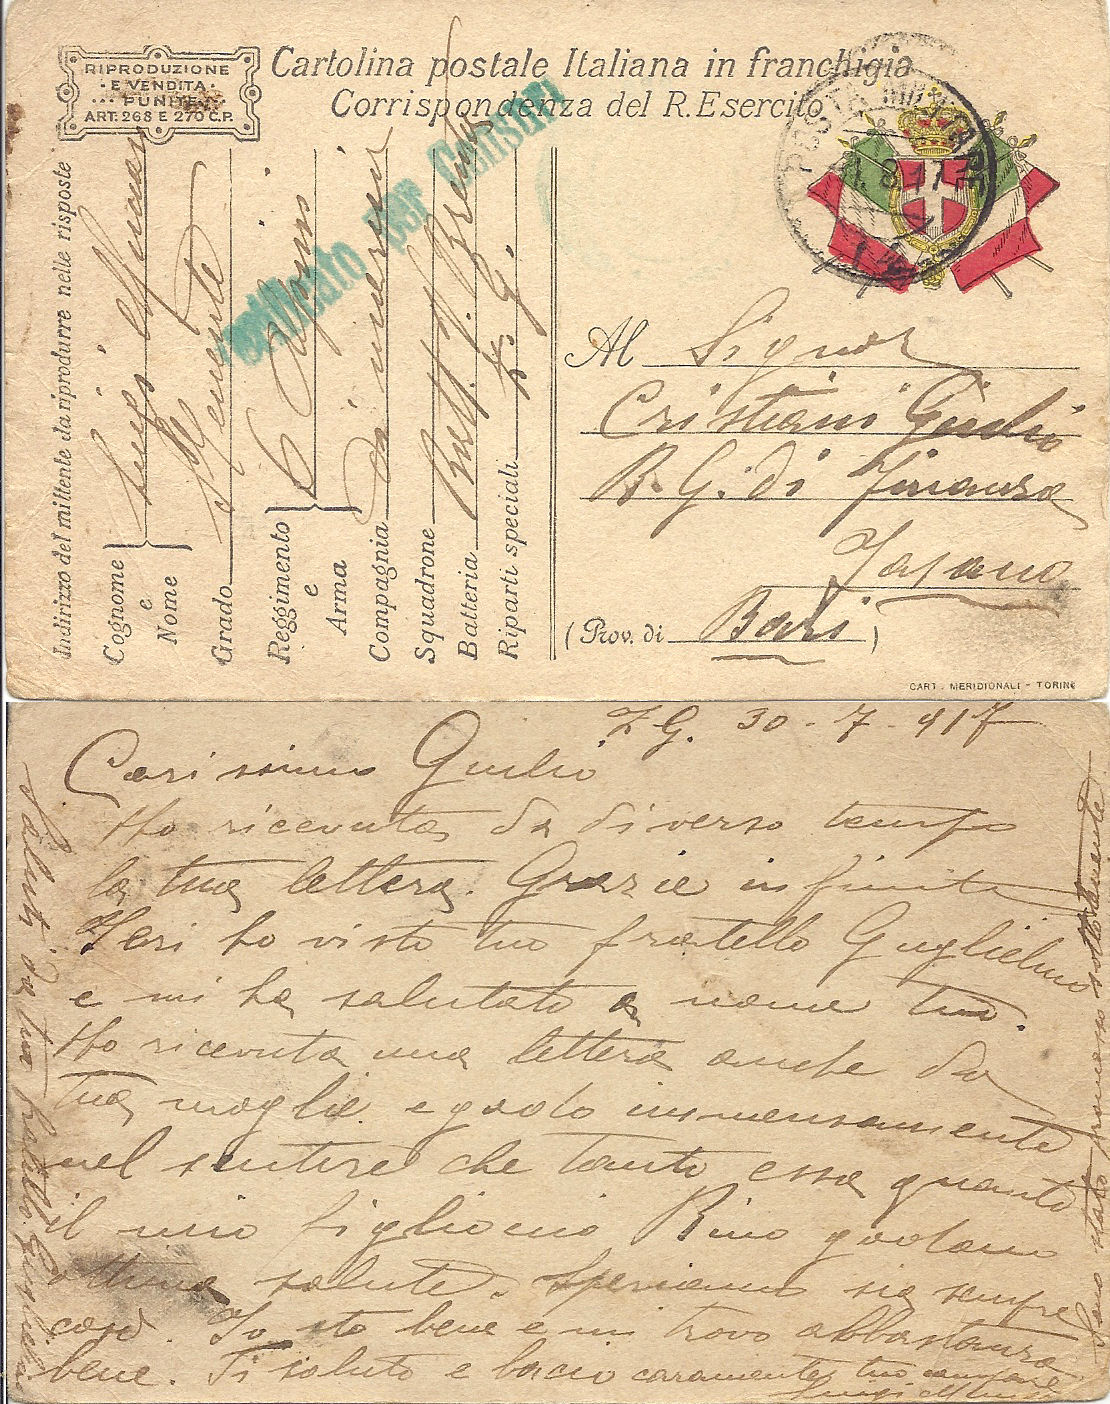 RIPRODUZIONE
E VENDITA
PUNITE
ART. 268 E 270 C.P.
Cartolina postale Italiana in franchigia
Corrispondenza del R. Esercito
POSTA MILITARE
Verificato per Censura
Indirizzo del mittente da riprodurre nelle risposte
Cognome e Nome Luigi
Grado Tenente
Reggimento e Arma 6 Alpini
Compagnia
Squadrone
Batteria Batt.
Riparti speciali Z. G.
Al Signor
Cristiani Giulio
R. G. di Finanza
Fasano
(Prov. di Bari)
CART. MERIDIONALI - TORINO
Z. G. 30-7-917
Carissimo Giulio
Ho ricevuta da diverso tempo
la tua lettera. Grazie infinite
Ieri ho visto tuo fratello Guglielmo
e mi ha salutato a nome tuo.
Ho ricevuta una lettera anche da
tua moglie e godo immensamente
nel sentire che tanto essa quanto
il mio figliocio Rino godano
ottima salute. Speriamo sia sempre
così. Io sto bene e mi trovo abbastanza
bene. Ti saluto e bacio caramente tuo compare
Luigi
Sono stato promosso sottotenente
Saluti da tuo fratello Guglielmo